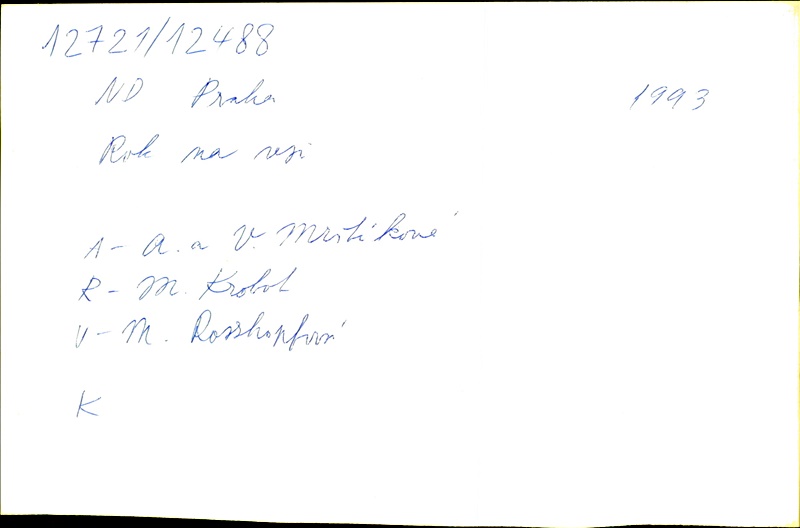 12721/12488
ND Praha 1993
Rok na vsi
1 - A. a V. Mrštíkové
R - M. Krobot
V - M. Rosskopfová
K